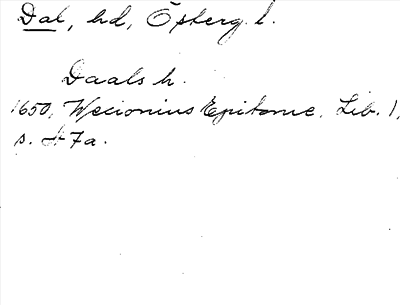 Dal, hd, Österg. l.
Daals h.
1650, Wexionius Epitome. Lib. 1,
s. A 7a.